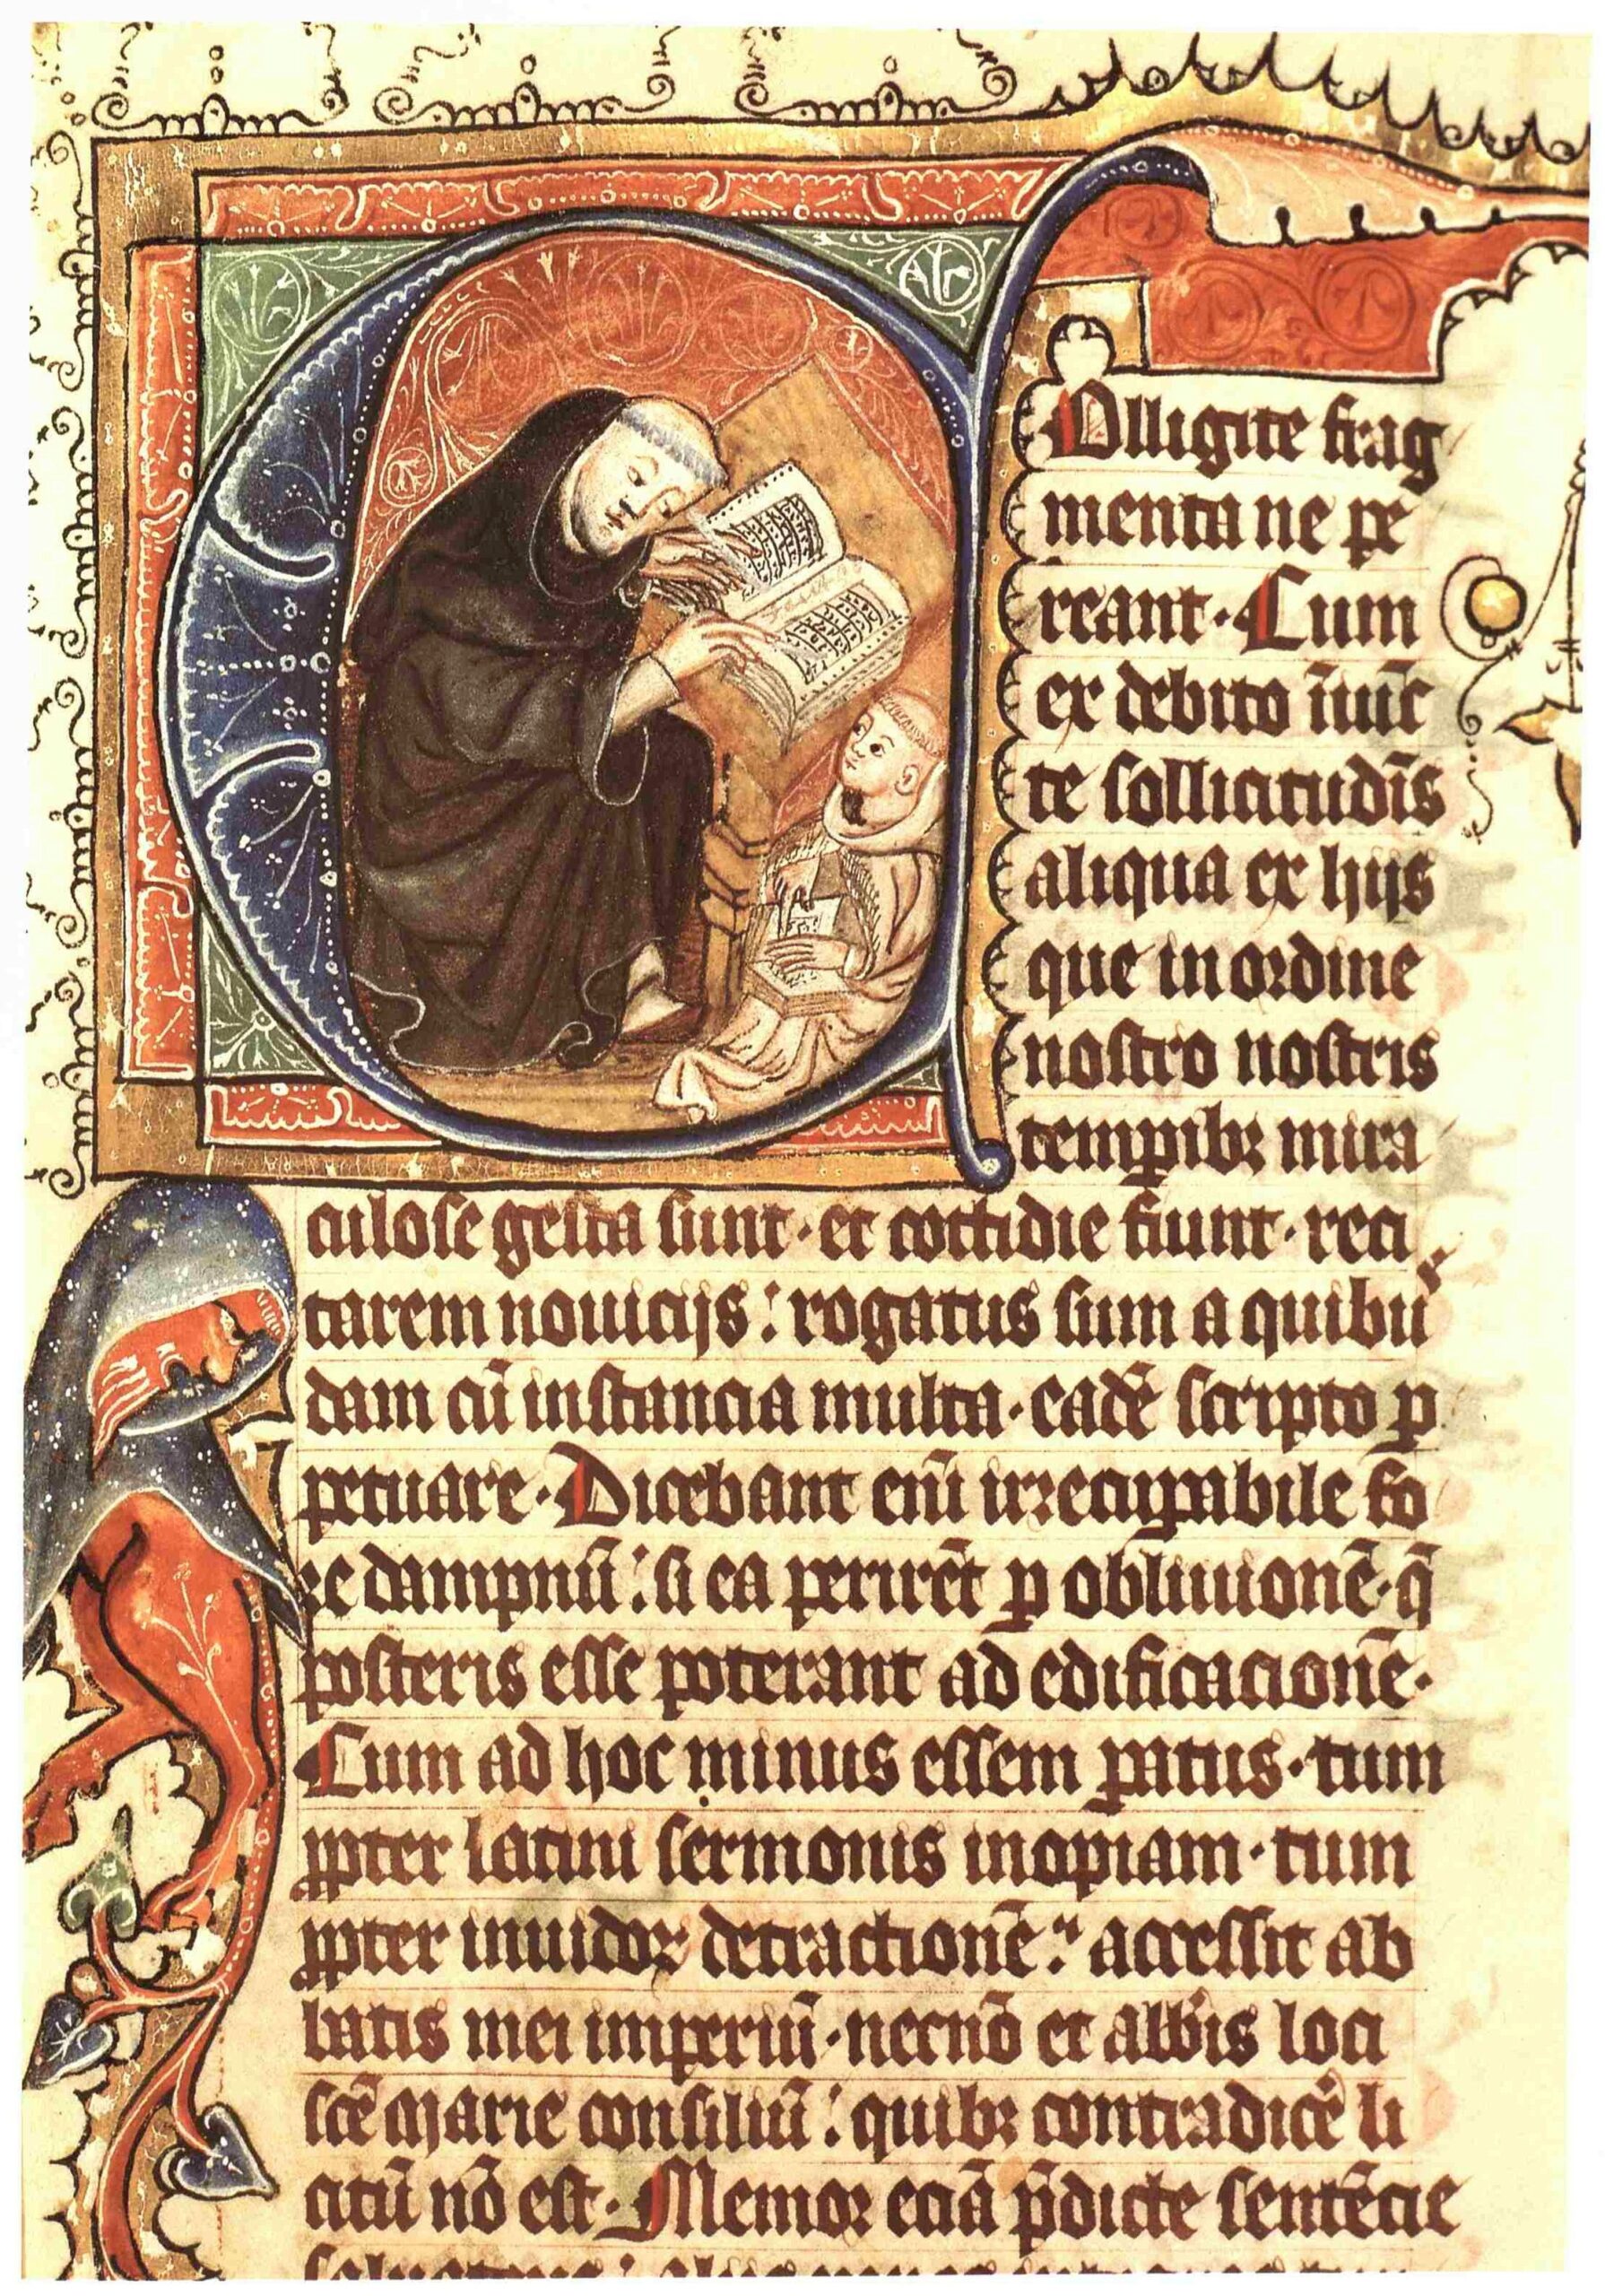 Colligite frag
menta ne pe
reant· Cum
ex debito iniūc
te sollicitudīs
aliqua ex hijs
que in ordine
nostro nostris
temꝑibꝫ mira
culose gesta sunt· et cottidie fiunt· reci
tarem nouicijs: rogatus sum a quibuſ
dam cū instancia multa· eadē scripto ꝑ
petuare· Dicebant enī irrecuꝑabile fo
re dampnū: si ea perirēt ꝑ obliuionē· q̄
posteris esse poterant ad edificacionē·
Cum ad hoc minus essem ꝑatus· tum
ꝓpter latini sermonis inopiam· tum
ꝓpter inuidoꝝ detractionē: accessit ab
batis mei imperiū· necnō et abbīs loci
scē Marie consiliū: quibꝫ contradicē li
citū nō est· Memor eciā p̄dicte sentēcie